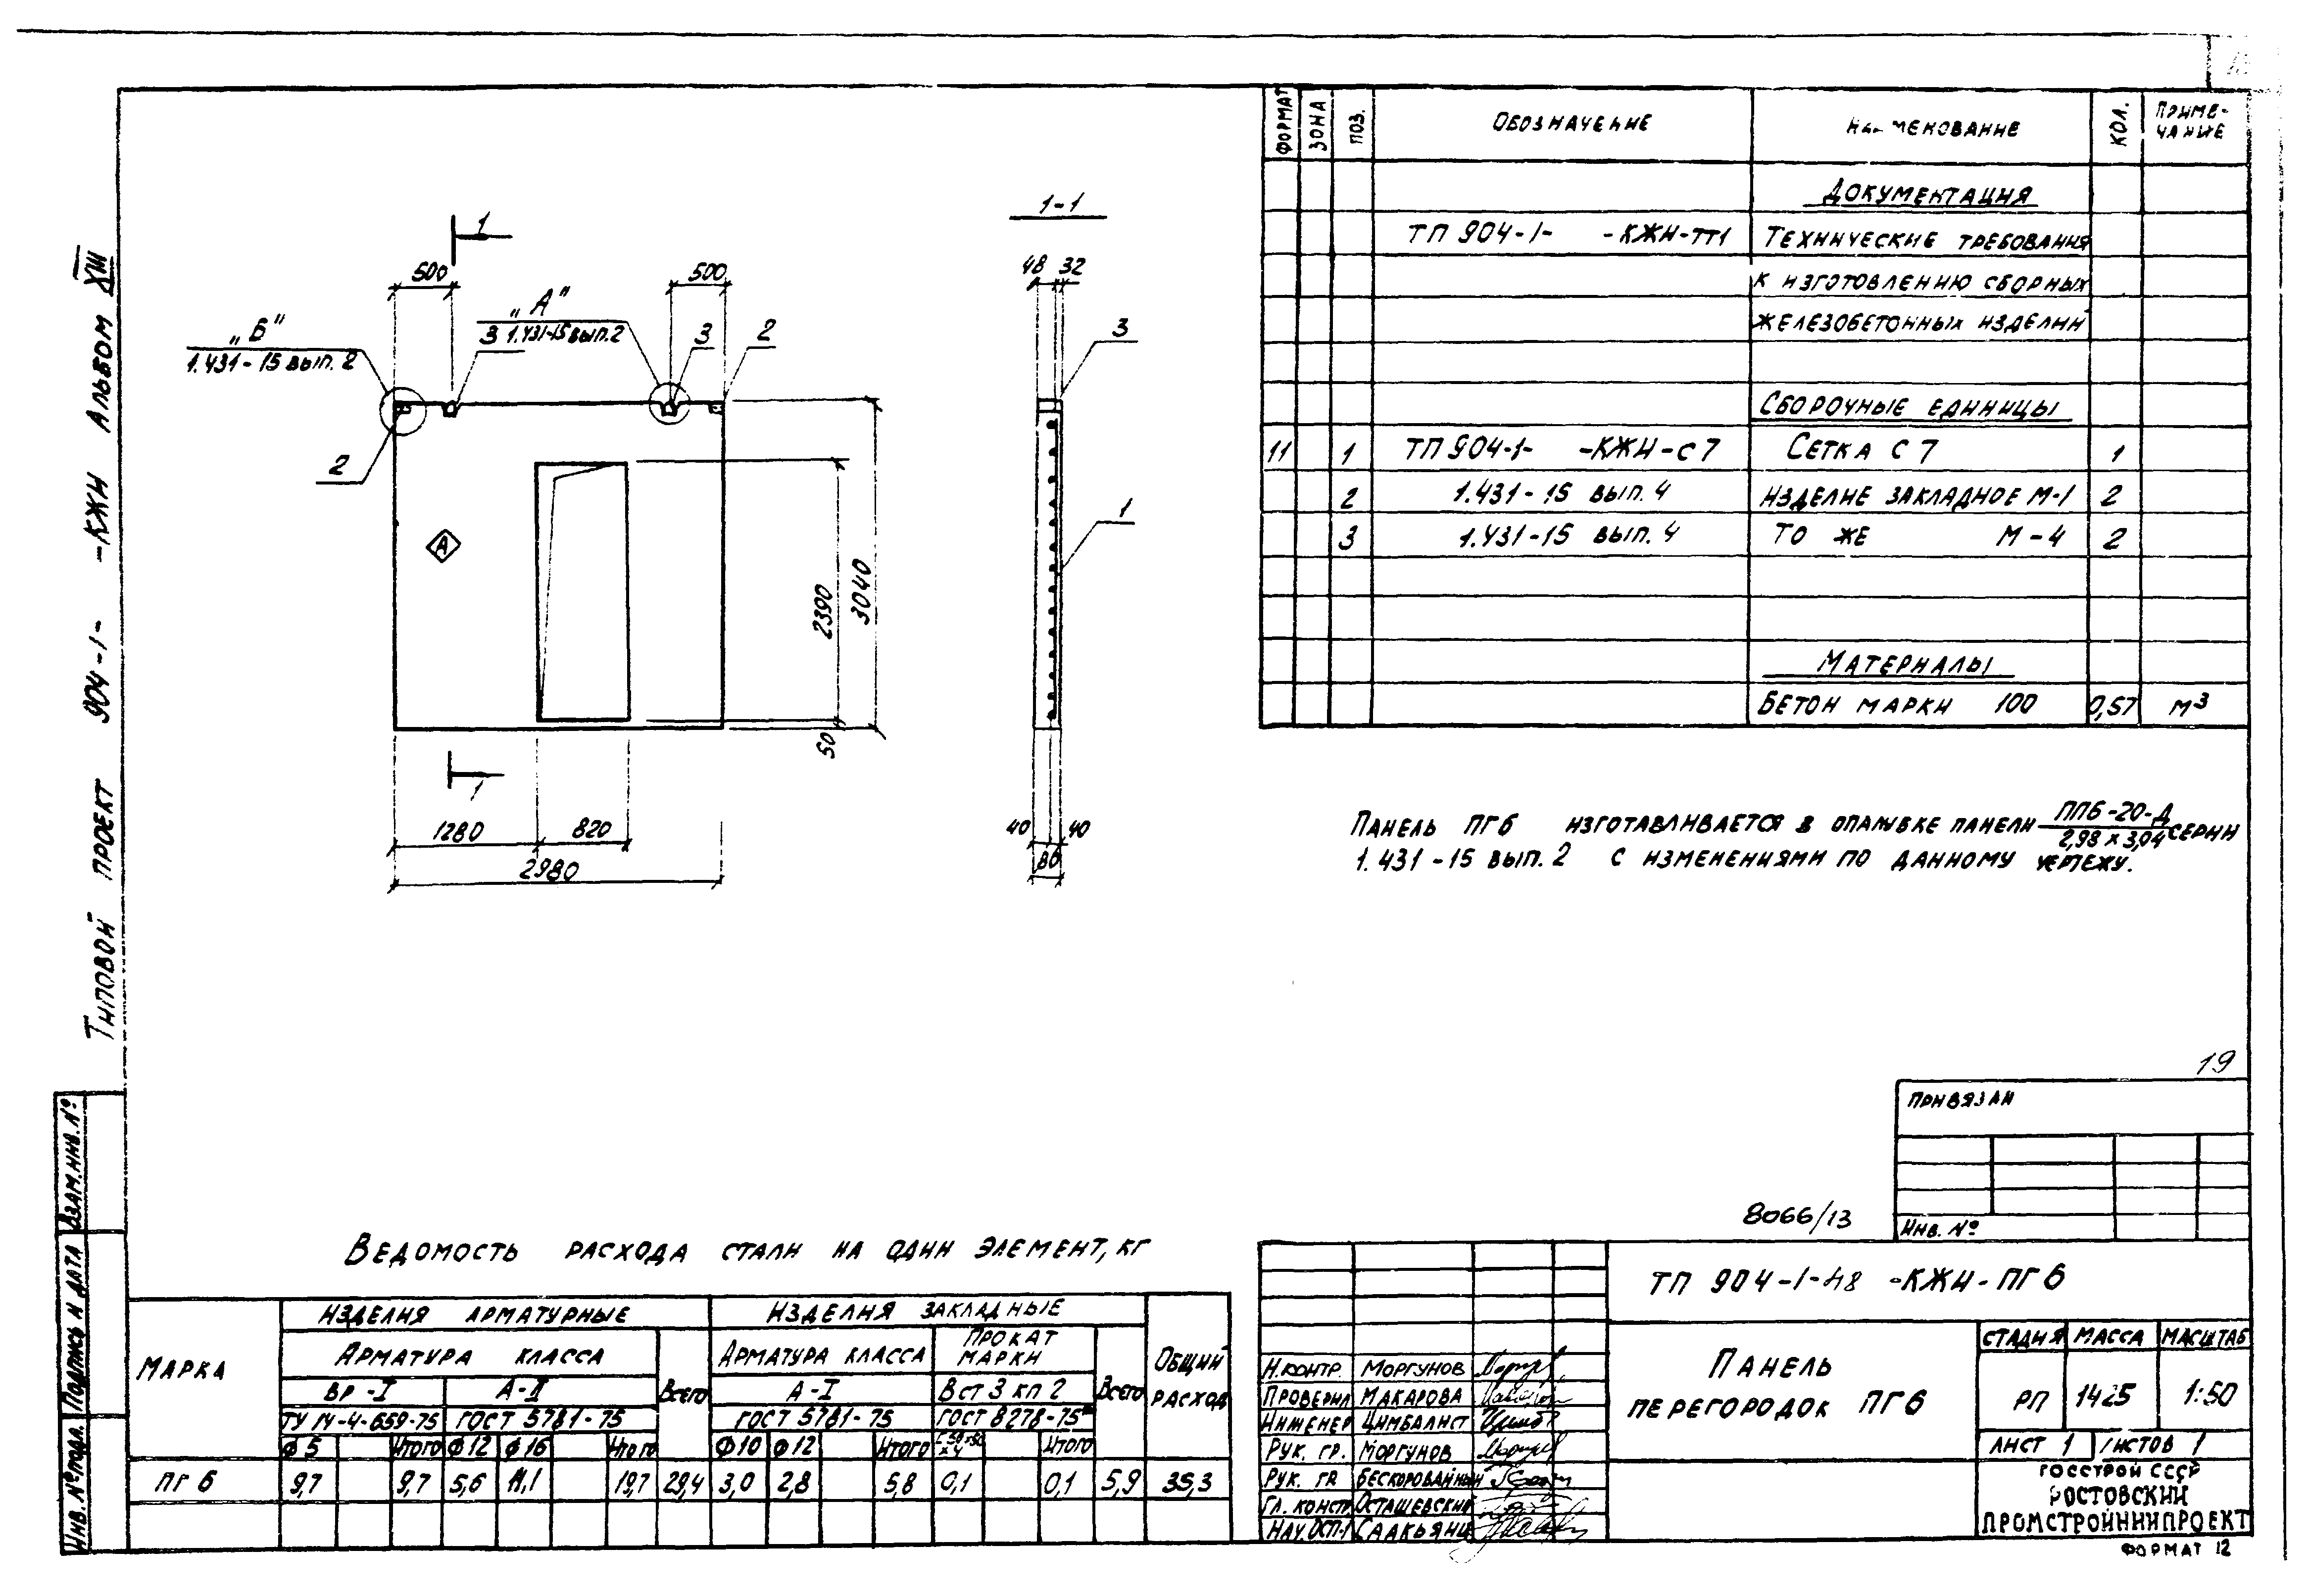 Типовой проект 904-1- -КЖИ Альбом XIII
1
500
500
„Б"
1.431-15 вып. 2
„А"
3 1.431-15 вып. 2
3
2
2
А
2390
3040
50
1
1280
820
2980
1-1
48 32
3
1
40 40
80
ФОРМАТ ЗОНА ПОЗ. ОБОЗНАЧЕНИЕ НАИМЕНОВАНИЕ КОЛ. ПРИМЕ-
ЧАНИЕ
ДОКУМЕНТАЦИЯ
ТП 904-1- -КЖИ-ТТ1 ТЕХНИЧЕСКИЕ ТРЕБОВАНИЯ
К ИЗГОТОВЛЕНИЮ СБОРНЫХ
ЖЕЛЕЗОБЕТОННЫХ ИЗДЕЛИЙ
СБОРОЧНЫЕ ЕДИНИЦЫ
11 1 ТП 904-1- -КЖИ-С7 СЕТКА С7 1
2 1.431-15 ВЫП. 4 ИЗДЕЛИЕ ЗАКЛАДНОЕ М-1 2
3 1.431-15 ВЫП. 4 ТО ЖЕ М-4 2
МАТЕРИАЛЫ
БЕТОН МАРКИ 100 0,57 м3
ПАНЕЛЬ ПГ6 ИЗГОТАВЛИВАЕТСЯ В ОПАЛУБКЕ ПАНЕЛИ ПП6-20-Д / 2,98 х 3,04 СЕРИИ
1.431-15 ВЫП. 2 С ИЗМЕНЕНИЯМИ ПО ДАННОМУ ЧЕРТЕЖУ.
19
ПРИВЯЗАН
ИНВ. №
8066/13
ВЕДОМОСТЬ РАСХОДА СТАЛИ НА ОДИН ЭЛЕМЕНТ, КГ
МАРКА
ИЗДЕЛИЯ АРМАТУРНЫЕ ИЗДЕЛИЯ ЗАКЛАДНЫЕ ОБЩИЙ РАСХОД
АРМАТУРА КЛАССА Всего АРМАТУРА КЛАССА ПРОКАТ МАРКИ Всего
ВР-I А-II А-I В ст 3 кп 2
ТУ 14-4-659-75 ГОСТ 5781-75 ГОСТ 5781-75 ГОСТ 8278-75
Ф5 Итого Ф12 Ф16 Итого Ф10 Ф12 Итого Итого
ПГ 6 9,7 9,7 5,6 14,1 19,7 29,4 3,0 2,8 5,8 0,1 0,1 5,9 35,3
ТП 904-1-48 -КЖИ-ПГ6
Н.КОНТР. МОРГУНОВ
ПРОВЕРИЛ МАКАРОВА
ИНЖЕНЕР ЦИМБАЛИСТ
РУК. ГР. МОРГУНОВ
РУК. ГР. БЕСКОРОВАЙНЫЙ
ГЛ. КОНСТР ОСТАШЕВСКИЙ
НАЧ.ОСП-1 СААКЬЯНЦ
ПАНЕЛЬ
ПЕРЕГОРОДОК ПГ6
СТАДИЯ МАССА МАСШТАБ
РП 1425 1:50
ЛИСТ 1 ЛИСТОВ 1
ГОССТРОЙ СССР
РОСТОВСКИЙ
ПРОМСТРОЙНИИПРОЕКТ
ФОРМАТ 12
ИНВ. № ПОДЛ. ПОДПИСЬ И ДАТА ВЗАМ. ИНВ. №